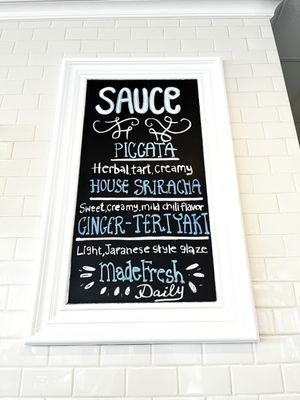 SAUCE
PICCATA
Herbal tart, creamy
HOUSE SRIRACHA
Sweet, creamy, mild chili flavor
GINGER-TERIYAKI
Light, Japanese style glaze
Made Fresh
Daily